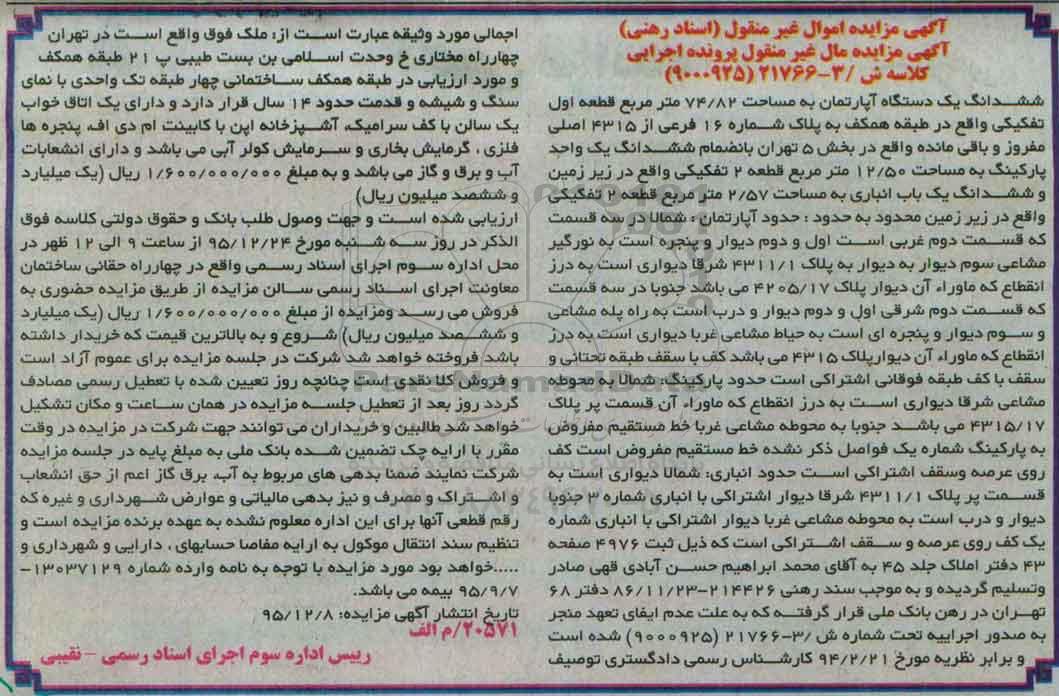 آگهی مزایده اموال غیر منقول (اسناد رهنی)
آگهی مزایده مال غیر منقول پرونده اجرایی
کلاسه ش /۳-۲۱۷۶۶ (۹۰۰۰۹۲۵)
ششدانگ یک دستگاه آپارتمان به مساحت ۷۴/۸۲ متر مربع قطعه اول
تفکیکی واقع در طبقه همکف به پلاک شماره ۱۶ فرعی از ۴۳۱۵ اصلی
مفروز و باقی مانده واقع در بخش ۵ تهران بانضمام ششدانگ یک واحد
پارکینگ به مساحت ۱۲/۵۰ متر مربع قطعه ۲ تفکیکی واقع در زیر زمین
و ششدانگ یک باب انباری به مساحت ۲/۵۷ متر مربع قطعه ۲ تفکیکی
واقع در زیر زمین محدود به حدود : حدود آپارتمان : شمالا در سه قسمت
که قسمت دوم غربی است اول و دوم دیوار و پنجره است به نورگیر
مشاعی سوم دیوار به دیوار به پلاک ۴۳۱۱/۱ شرقا دیواری است به درز
انقطاع که ماوراء آن دیوار پلاک ۴۲۰۵/۱۷ می باشد جنوبا در سه قسمت
که قسمت دوم شرقی اول و دوم دیوار و درب است به راه پله مشاعی
و سوم دیوار و پنجره ای است به حیاط مشاعی غربا دیواری است به درز
انقطاع که ماوراء آن دیوارپلاک ۴۳۱۵ می باشد کف با سقف طبقه تحتانی و
سقف با کف طبقه فوقانی اشتراکی است حدود پارکینگ: شمالا به محوطه
مشاعی شرقا دیواری است به درز انقطاع که ماوراء آن قسمت پر پلاک
۴۳۱۵/۱۷ می باشد جنوبا به محوطه مشاعی غربا خط مستقیم مفروض
به پارکینگ شماره یک فواصل ذکر نشده خط مستقیم مفروض است کف
روی عرصه وسقف اشتراکی است حدود انباری: شمالا دیواری است به
قسمت پر پلاک ۴۳۱۱/۱ شرقا دیوار اشتراکی با انباری شماره ۳ جنوبا
دیوار و درب است به محوطه مشاعی غربا دیوار اشتراکی با انباری شماره
یک کف روی عرصه و سقف اشتراکی است که ذیل ثبت ۴۹۷۶ صفحه
۴۳ دفتر املاک جلد ۴۵ به آقای محمد ابراهیم حسن آبادی قهی صادر
وتسلیم گردیده و به موجب سند رهنی ۲۱۴۴۲۶-۸۶/۱۱/۲۳ دفتر ۶۸
تهران در رهن بانک ملی قرار گرفته که به علت عدم ایفای تعهد منجر
به صدور اجراییه تحت شماره ش /۳-۲۱۷۶۶ (۹۰۰۰۹۲۵) شده است
و برابر نظریه مورخ ۹۴/۲/۲۱ کارشناس رسمی دادگستری توصیف
اجمالی مورد وثیقه عبارت است از: ملک فوق واقع است در تهران
چهارراه مختاری خ وحدت اسلامی بن بست طبیبی پ ۲۱ طبقه همکف
و مورد ارزیابی در طبقه همکف ساختمانی چهار طبقه تک واحدی با نمای
سنگ و شیشه و قدمت حدود ۱۴ سال قرار دارد و دارای یک اتاق خواب
یک سالن با کف سرامیک، آشپزخانه اپن با کابینت ام دی اف، پنجره ها
فلزی ، گرمایش بخاری و سرمایش کولر آبی می باشد و دارای انشعابات
آب و برق و گاز می باشد و به مبلغ ۱/۶۰۰/۰۰۰/۰۰۰ ریال (یک میلیارد
و ششصد میلیون ریال)
ارزیابی شده است و جهت وصول طلب بانک و حقوق دولتی کلاسه فوق
الذکر در روز سه شنبه مورخ ۹۵/۱۲/۲۴ از ساعت ۹ الی ۱۲ ظهر در
محل اداره سوم اجرای اسناد رسمی واقع در چهارراه حقانی ساختمان
معاونت اجرای اسناد رسمی سالن مزایده از طریق مزایده حضوری به
فروش می رسد ومزایده از مبلغ ۱/۶۰۰/۰۰۰/۰۰۰ ریال (یک میلیارد
و ششصد میلیون ریال) شروع و به بالاترین قیمت که خریدار داشته
باشد فروخته خواهد شد شرکت در جلسه مزایده برای عموم آزاد است
و فروش کلا نقدی است چنانچه روز تعیین شده با تعطیل رسمی مصادف
گردد روز بعد از تعطیل جلسه مزایده در همان ساعت و مکان تشکیل
خواهد شد طالبین و خریداران می توانند جهت شرکت در مزایده در وقت
مقرر با ارایه چک تضمین شده بانک ملی به مبلغ پایه در جلسه مزایده
شرکت نمایند ضمنا بدهی های مربوط به آب، برق گاز اعم از حق انشعاب
و اشتراک و مصرف و نیز بدهی مالیاتی و عوارض شهرداری و غیره که
رقم قطعی آنها برای این اداره معلوم نشده به عهده برنده مزایده است و
تنظیم سند انتقال موکول به ارایه مفاصا حسابهای ، دارایی و شهرداری و
.....خواهد بود مورد مزایده با توجه به نامه وارده شماره ۱۳۰۳۷۱۲۹-
۹۵/۹/۷ بیمه می باشد.
تاریخ انتشار آگهی مزایده: ۹۵/۱۲/۸
۲۰۵۷۱/م الف
رییس اداره سوم اجرای اسناد رسمی - نقیبی